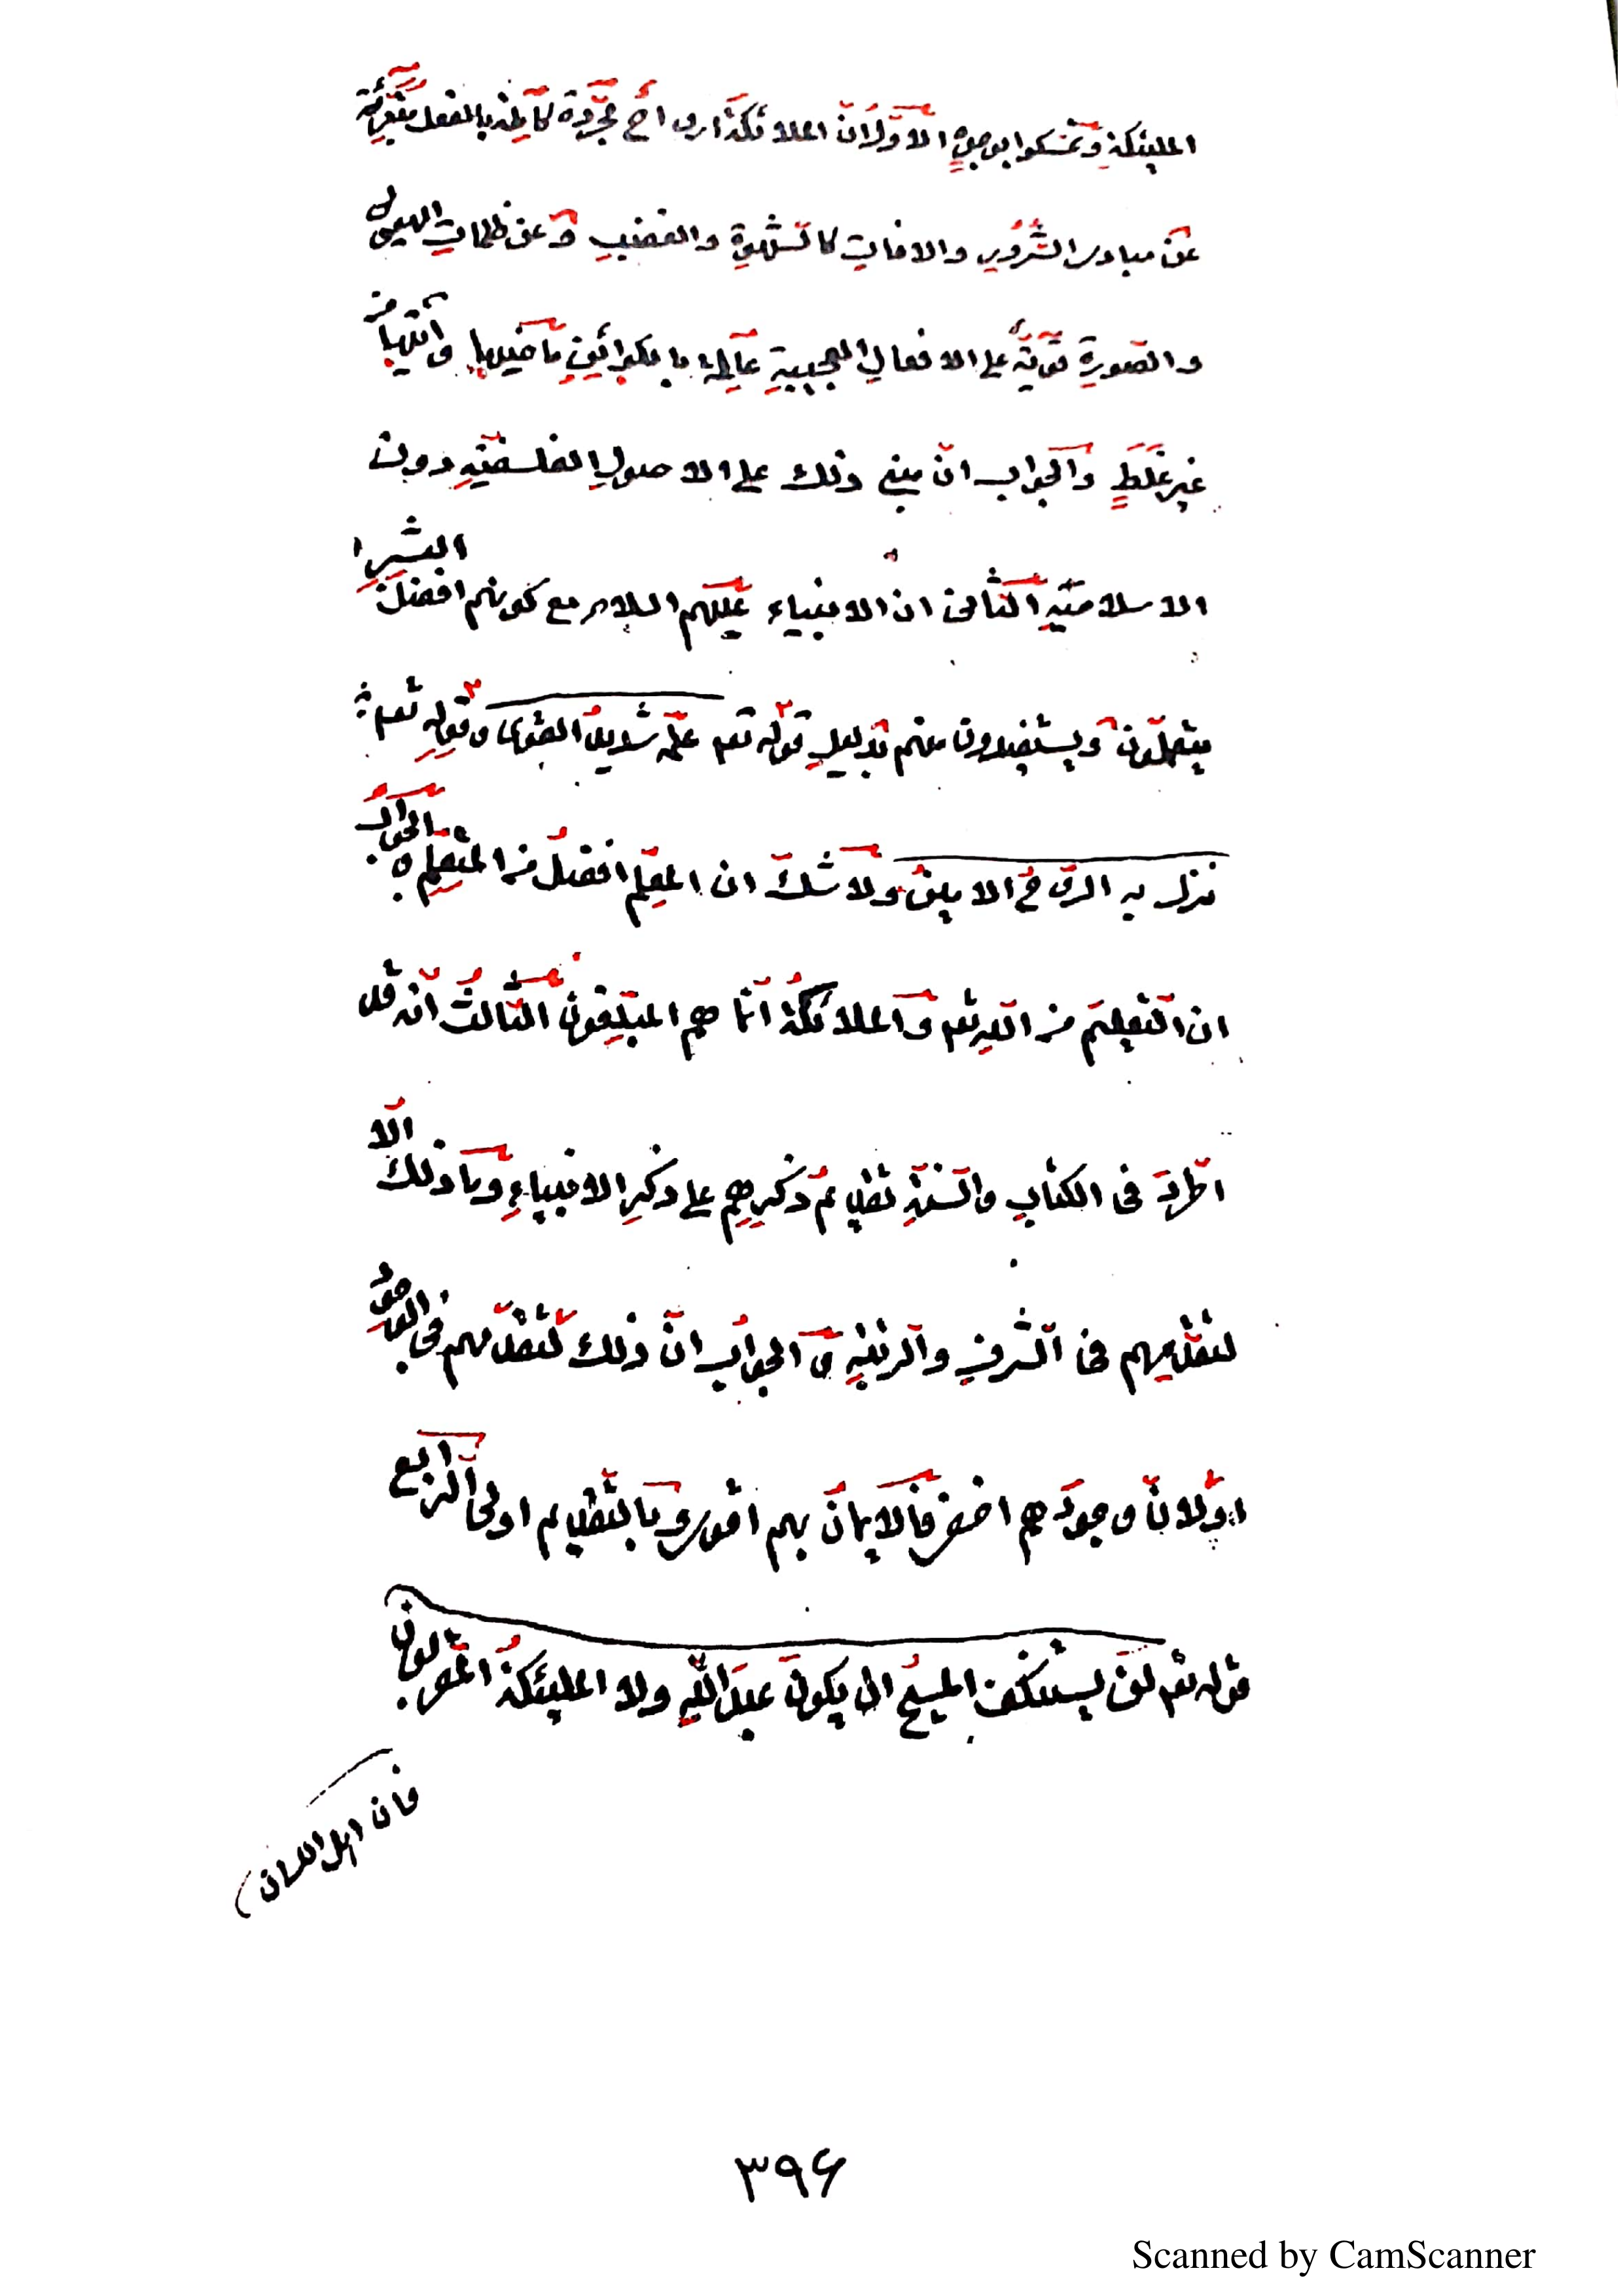 الملئكة وتمسكوا بوجوه الاوّل انّ الملائكة ارواح مجرّدة كاملة بالفعل مبرّأة
عن مبادى الشّرور والافات كالشّهوة والغضب وعن ظلمات الهيولى
والصّورة قويّة على الافعال العجيبة عالمة بالكوائن ماضيها وأتيها من
غير غلط والجواب انّ مبنى ذلك على الاصول الفلسفيّة دون
الاسلاميّة الثانى ان الانبياء عليهم السلام مع كونهم افضل البشر
يتعلّمون ويستفيدون منهم بدليل قوله تع علّمه شديد القوى وقوله تع
نزل به الرّوح الامين ولا شكّ ان المعلّم افضل من المتعلّم والجواب
ان التّعليم من اللّه تع والملائكة انّما هم المبلّغون الثّالث انّه قد
اطّرد فى الكتاب والسّنّة تقديم ذكرهم على ذكر الانبياء وما ذلك الّا
لتقدّمهم فى الشّرف والرتبة والجواب انّ ذلك لتقدّمهم فى الوجود
اولانّ وجودهم اخفى فالايمان بهم اقوى وبالتّقديم اولى الرّابع
قوله تع لن يستنكف المسيح ان يكون عبدا للّه ولا الملئكة المقربون
فان اهل اللسان
٣٩۶
Scanned by CamScanner